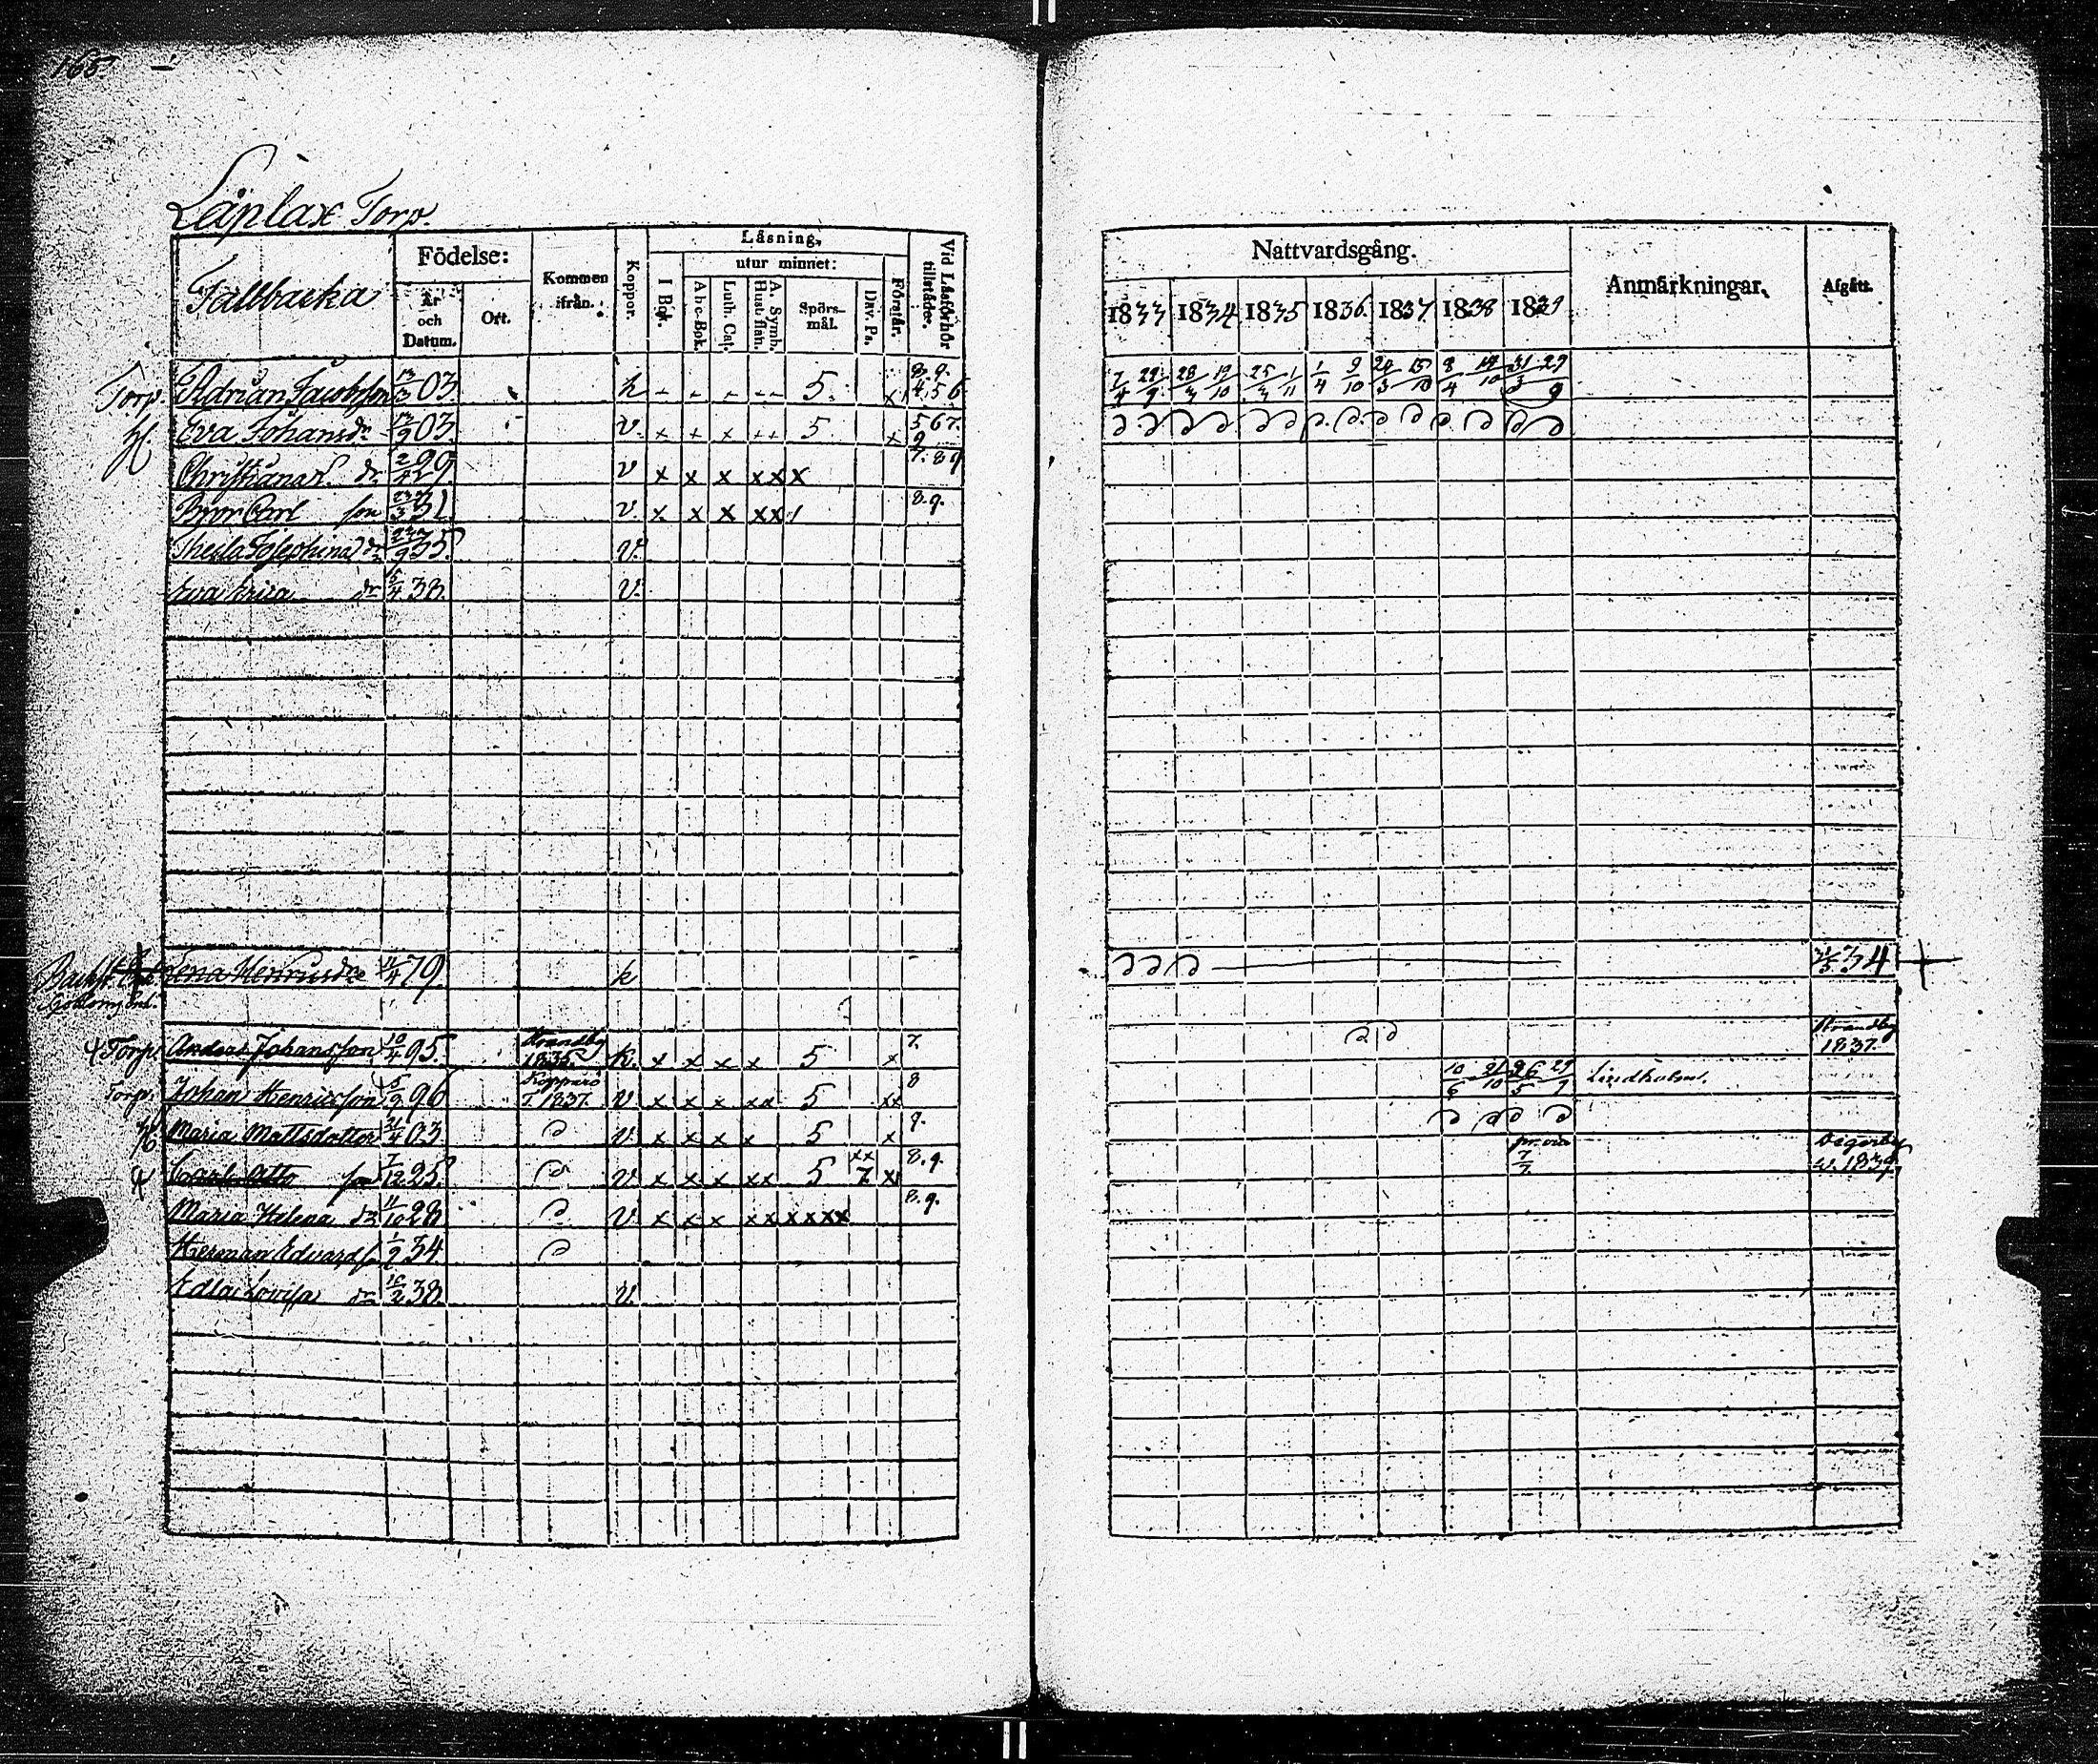 165.
Läplax Torp.
Tallbacka
Födelse:
År och Datum.
Ort.
Kommen ifrån.
Koppor.
Läsning,
I Bok.
utur minnet:
Abc-Bok.
Luth. Cat.
A. Symb. Hust. flan.
Spörsmål.
Dav. Ps.
Förstår.
Vid Läsförhör tillstädes.
Nattvardsgång.
1833 1834 1835 1836 1837 1838 1839
Anmärkningar.
Afgått.
Torp. Adrian Jacobsson 13/3 03. k 5. x 8.9. 4.5 6 7/4 29/9 1/4 9/10 24/3 15/10 8/4 14/10 31/3 29/9
H Eva Johansdr 13/9 03. v. x x x xx 5 x 5 6 7. 9
Christiana dr 29. v x x x x x x 7. 8 9
Carl son 32. v. x x x xx / 8.9.
Thecla Josephina dr 35. v.
Eva Erica dr 5/4 38. v.
Lena Henricsdr 11/4 79. k 34 +
Torp. Anders Johansson 10/4 95. Strandby 1835. k. x x x x 5 x 7. Strandby 1837.
Torp. Johan Henricsson 5/9 96 Kopparö T. 1837. v x x x xx 5 xx 8 10/6 21/10 26/5 29/9 Lindholm.
H Maria Mattsdotter 21/4 03 v x x x x 5 x 9.
Carl Otto son 7/12 25. v x x x xx 5 xx 7 x 8.9. 7/7. Degerby
Maria Helena dr 11/10 28 v x x x xx xxxx 8.9.
Herman Edvard s. 1/9 34.
Edla Lovisa dr 16/2 38. v